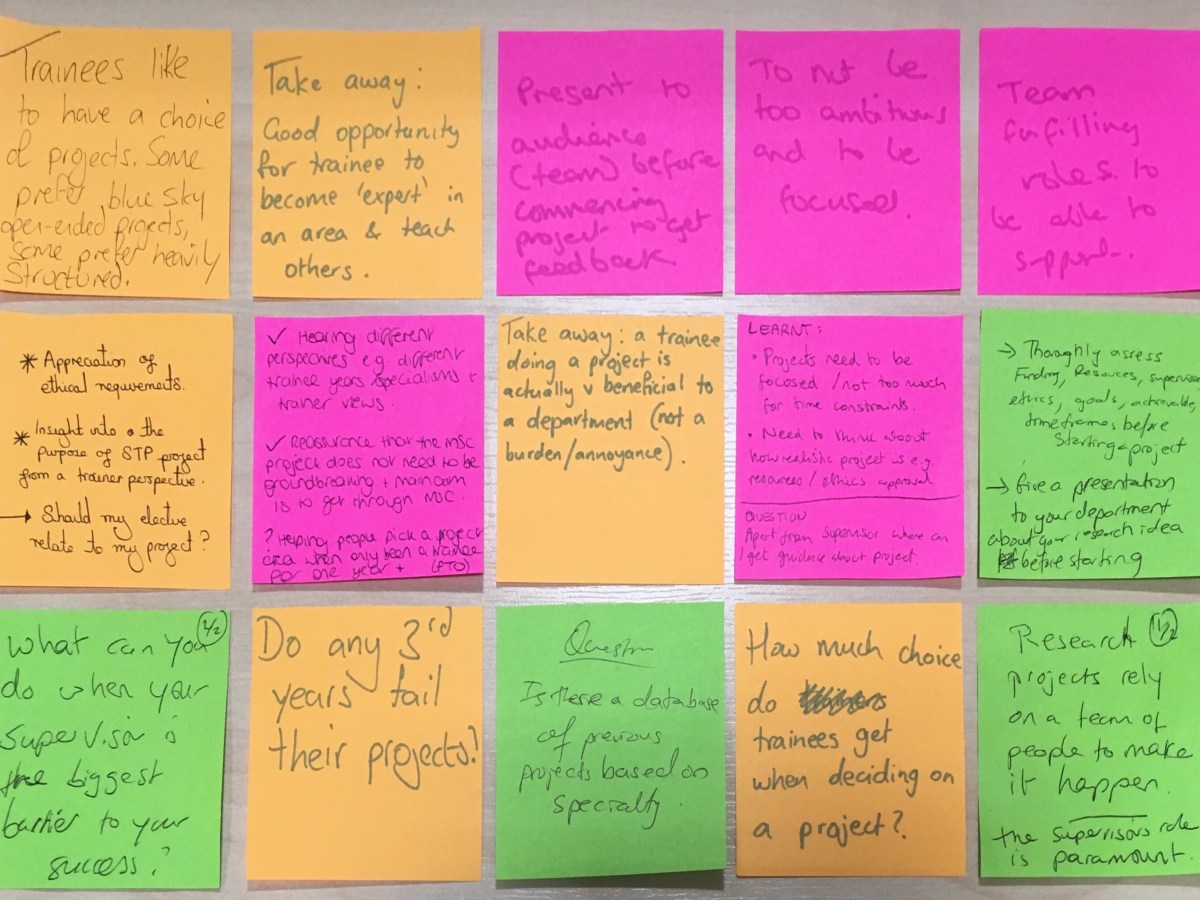 Trainees like
to have a choice
of projects. Some
prefer blue sky
open-ended projects,
some prefer heavily
structured.
Take away:
Good opportunity
for trainee to
become 'expert' in
an area & teach
others.
Present to
audience
(team) before
commencing
project to get
feedback
To not be
too ambitious
and to be
focused.
Team
fulfilling
roles to
be able to
support.
* Appreciation of
ethical requirements.
* Insight into the
purpose of STP project
from a trainer perspective.
→ Should my elective
relate to my project?
✓ Hearing different
perspectives e.g. different
trainee years specialisms +
trainer views.
✓ Reassurance that the MSC
project does not need to be
groundbreaking + main aim
is to get through MSC.
? Helping people pick a project
area when only been a trainee
for one year + (PTO)
Take away: a trainee
doing a project is
actually v beneficial to
a department (not a
burden/annoyance).
LEARNT:
• Projects need to be
focused / not too much
for time constraints.
• Need to think about
how realistic project is e.g.
resources / ethics approval
QUESTION
Apart from supervisor where can
I get guidance about project.
→ Thoroughly assess
Funding, Resources, supervisor
ethics, goals, achievable,
timeframes before
starting project
→ Give a presentation
to your department
about your research idea
before starting
What can you 1/2
do when your
supervisor is
the biggest
barrier to your
success?
Do any 3rd
years fail
their projects?
Question
Is there a database
of previous
projects based on
specialty.
How much choice
do
trainees get
when deciding on
a project?
Research 1/2
projects rely
on a team of
people to make
it happen.
the supervisors role
is paramount.